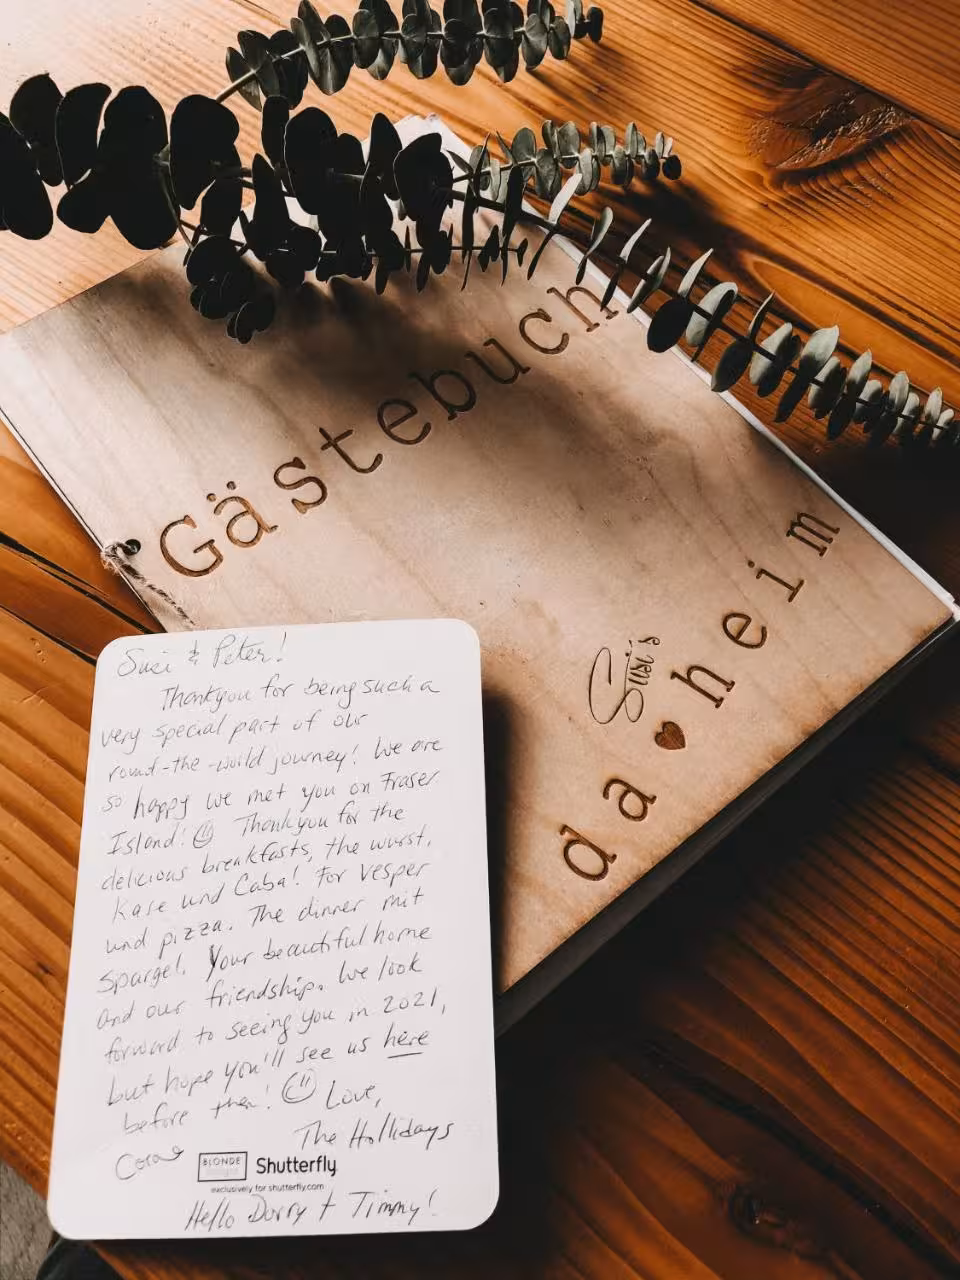 Gästebuch
Susi's
da♥heim
Susi & Peter!
Thankyou for being such a
very special part of our
round-the-world journey! We are
so happy we met you on Fraser
Island! ☺ Thankyou for the
delicious breakfasts, the wurst,
Kase und Caba! For Vesper
und pizza. The dinner mit
Spargel. Your beautiful home
and our friendship. We look
forward to seeing you in 2021,
but hope you'll see us here
before then! ☺ Love,
The Hollidays
BLONDE
Shutterfly
exclusively for shutterfly.com
Hello Dorry + Timmy!